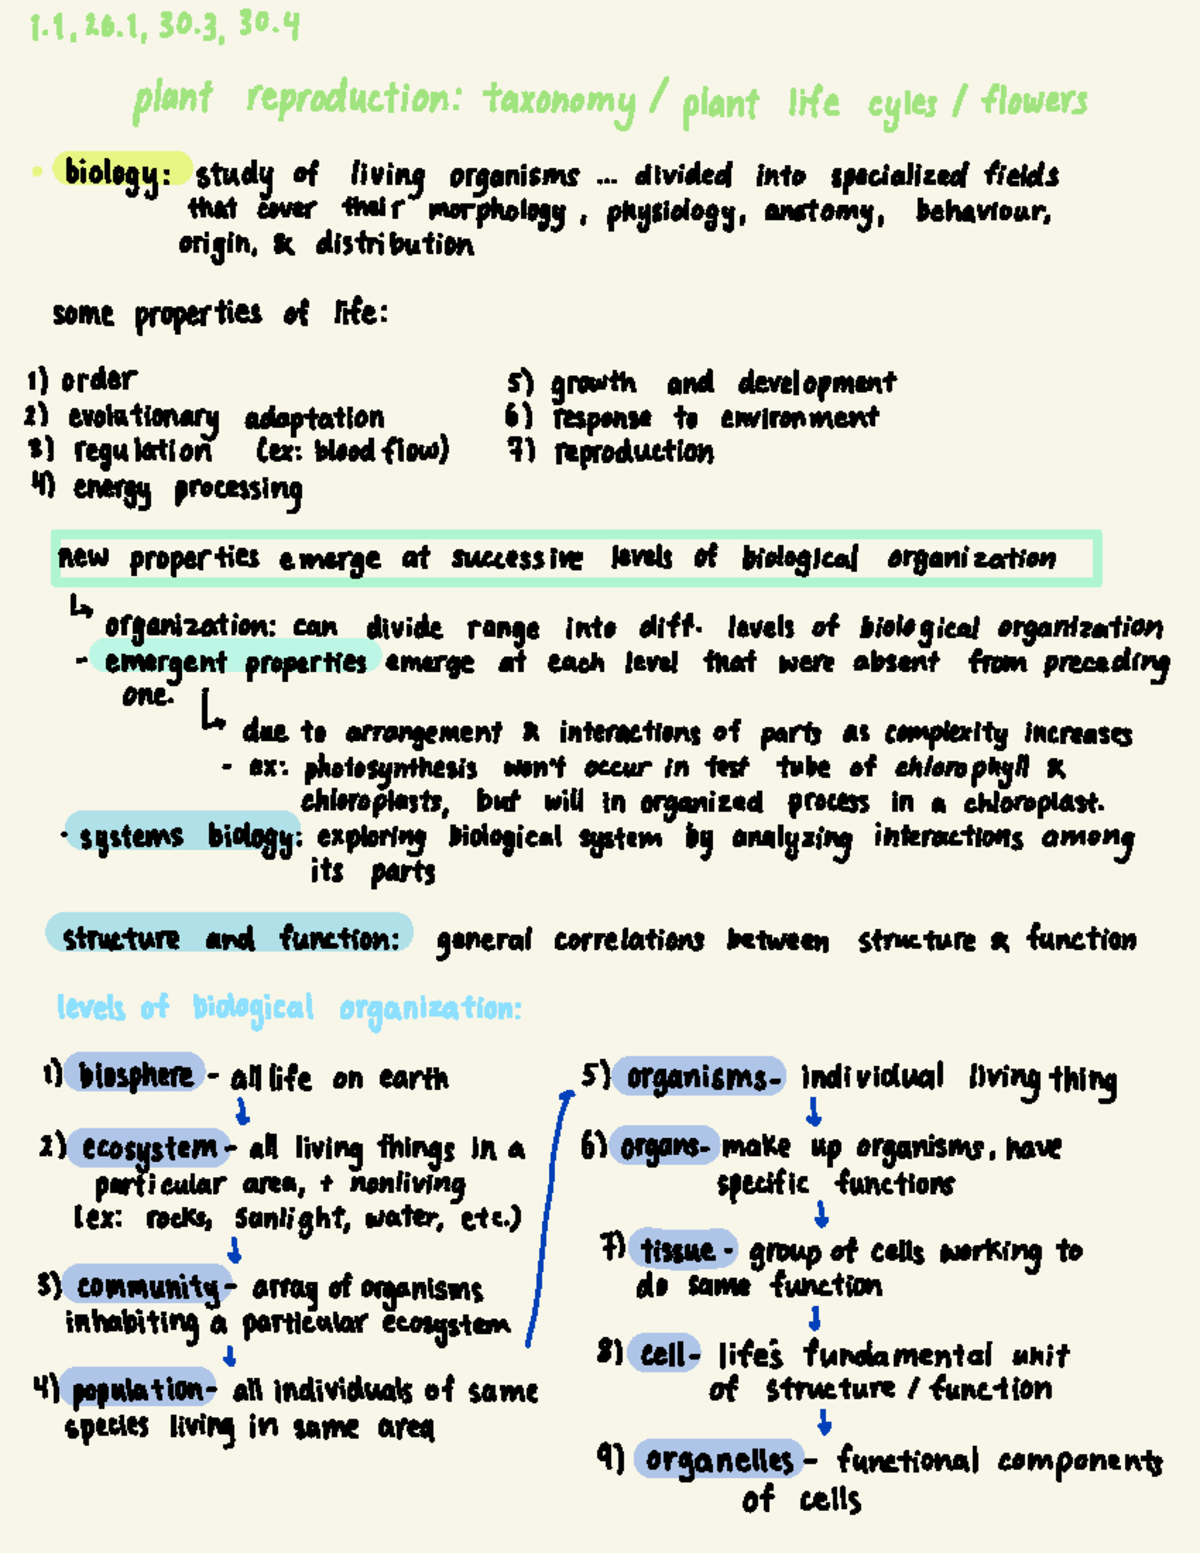 1.1, 26.1, 30.3, 30.4
plant reproduction: taxonomy / plant life cyles / flowers
• biology: study of living organisms ... divided into specialized fields
that cover their morphology, physiology, anatomy, behaviour,
origin, & distribution
some properties of life:
1) order
2) evolutionary adaptation
3) regulation (ex: blood flow)
4) energy processing
5) growth and development
6) response to environment
7) reproduction
new properties emerge at successive levels of biological organization
↳ organization: can divide range into diff. levels of biological organization
- emergent properties emerge at each level that were absent from preceding
one.
↳ due to arrangement & interactions of parts as complexity increases
- ex: photosynthesis won't occur in test tube of chlorophyll &
chloroplasts, but will in organized process in a chloroplast.
• systems biology: exploring biological system by analyzing interactions among
its parts
structure and function: general correlations between structure & function
levels of biological organization:
1) biosphere - all life on earth
2) ecosystem - all living things in a
particular area, + nonliving
(ex: rocks, sunlight, water, etc.)
3) community - array of organisms
inhabiting a particular ecosystem
4) population - all individuals of same
species living in same area
5) organisms - individual living thing
6) organs - make up organisms, have
specific functions
7) tissue - group of cells working to
do same function
8) cell - life's fundamental unit
of structure / function
9) organelles - functional components
of cells